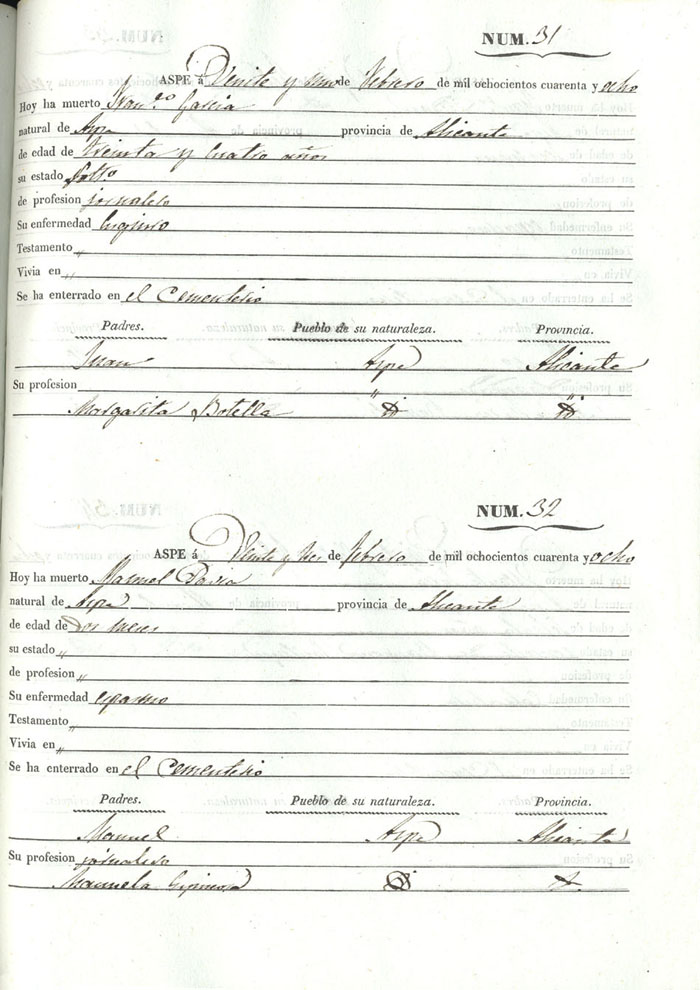 NUM. 31
ASPE á Veinte y uno de Febrero de mil ochocientos cuarenta y ocho
Hoy ha muerto Fran.co Garcia
natural de Aspe provincia de Alicante
de edad de treinta y cuatro años
su estado Solt.o
de profesion jornalero
Su enfermedad
Testamento „
Vivia en „
Se ha enterrado en el Cementerio
Padres. Pueblo de su naturaleza. Provincia.
Juan Aspe Alicante
Su profesion „ „
Margarita Botella
NUM. 32
ASPE á Veinte y tres de Febrero de mil ochocientos cuarenta y ocho
Hoy ha muerto Manuel Pavia
natural de Aspe provincia de Alicante
de edad de Dos meses
su estado „
de profesion „
Su enfermedad espasmo
Testamento „
Vivia en „
Se ha enterrado en el Cementerio
Padres. Pueblo de su naturaleza. Provincia.
Manuel Aspe Alicante
Su profesion jornalero
Manuela Espinosa